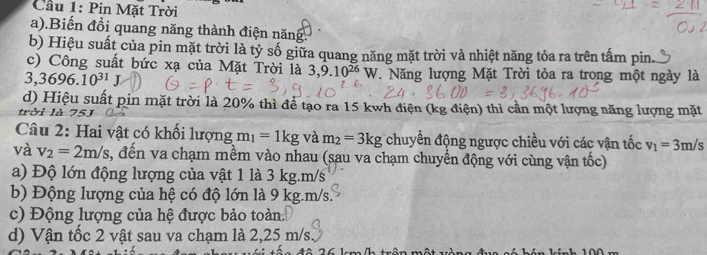 Câu 1: Pin Mặt Trời
a).Biến đổi quang năng thành điện năng. Đ
b) Hiệu suất của pin mặt trời là tỷ số giữa quang năng mặt trời và nhiệt năng tỏa ra trên tấm pin. S
c) Công suất bức xạ của Mặt Trời là 3,9.10²⁶ W. Năng lượng Mặt Trời tỏa ra trong một ngày là
3,3696.10³¹ J Đ Q = P.t = 3,9.10²⁶. 24. 3600 = 3,3696.10
d) Hiệu suất pin mặt trời là 20% thì để tạo ra 15 kwh điện (kg điện) thì cần một lượng năng lượng mặt
trời là 75J
Câu 2: Hai vật có khối lượng m₁ = 1kg và m₂ = 3kg chuyển động ngược chiều với các vận tốc v₁ = 3m/s
và v₂ = 2m/s, đến va chạm mềm vào nhau (sau va chạm chuyển động với cùng vận tốc)
a) Độ lớn động lượng của vật 1 là 3 kg.m/s Đ
b) Động lượng của hệ có độ lớn là 9 kg.m/s. S
c) Động lượng của hệ được bảo toàn. Đ
d) Vận tốc 2 vật sau va chạm là 2,25 m/s. S